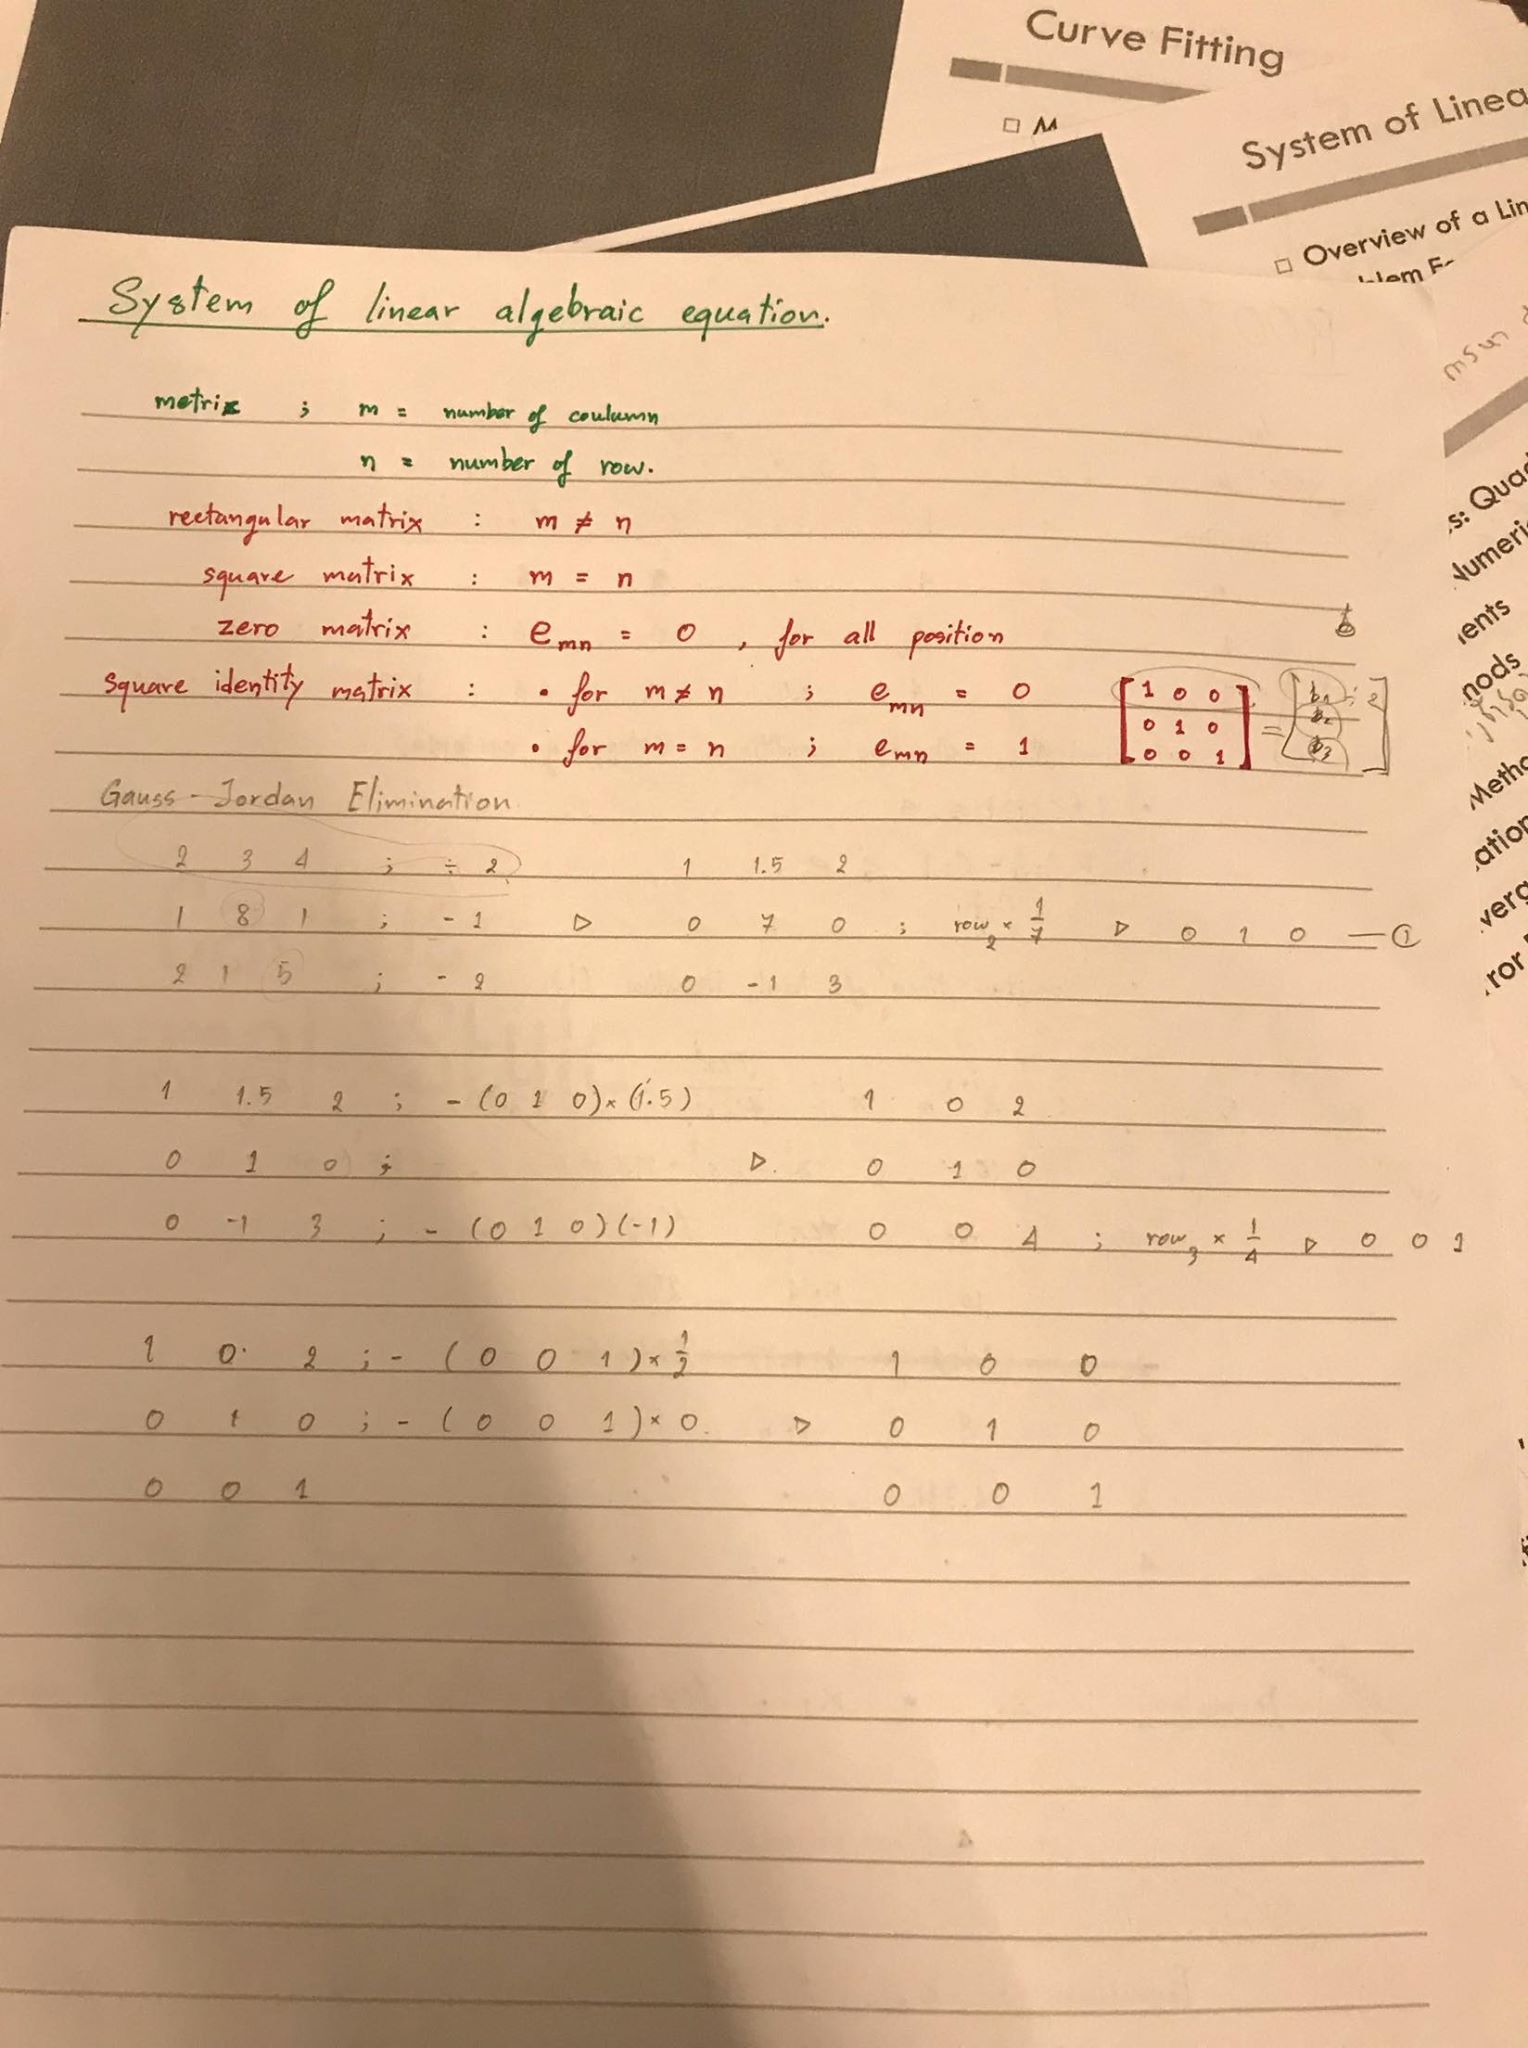 Curve Fitting
System of Linea
Overview of a Lin
System of linear algebraic equation.
metrix ; m = number of coulumn
n = number of row.
rectangular matrix : m ≠ n
square matrix : m = n
zero matrix : emn = 0 , for all position
square identity matrix : • for m ≠ n ; emn = 0
• for m = n ; emn = 1
[1 0 0
0 1 0
0 0 1] = [b1
b2
b3]
Gauss-Jordan Elimination
2 3 4 ; ÷ 2 1 1.5 2
1 8 1 ; - 1 ▷ 0 7 0 ; row2 × 1/7 ▷ 0 1 0 — ①
2 1 5 ; - 2 0 -1 3
1 1.5 2 ; - (0 1 0) × (1.5) 1 0 2
0 1 0 ; ▷ 0 1 0
0 -1 3 ; - (0 1 0)(-1) 0 0 4 ; row3 × 1/4 ▷ 0 0 1
1 0 2 ; - (0 0 1) × 1/2 1 0 0
0 1 0 ; - (0 0 1) × 0. ▷ 0 1 0
0 0 1 0 0 1
s: Quad
Numeri
ents
nods
Metho
ation
verg
ror